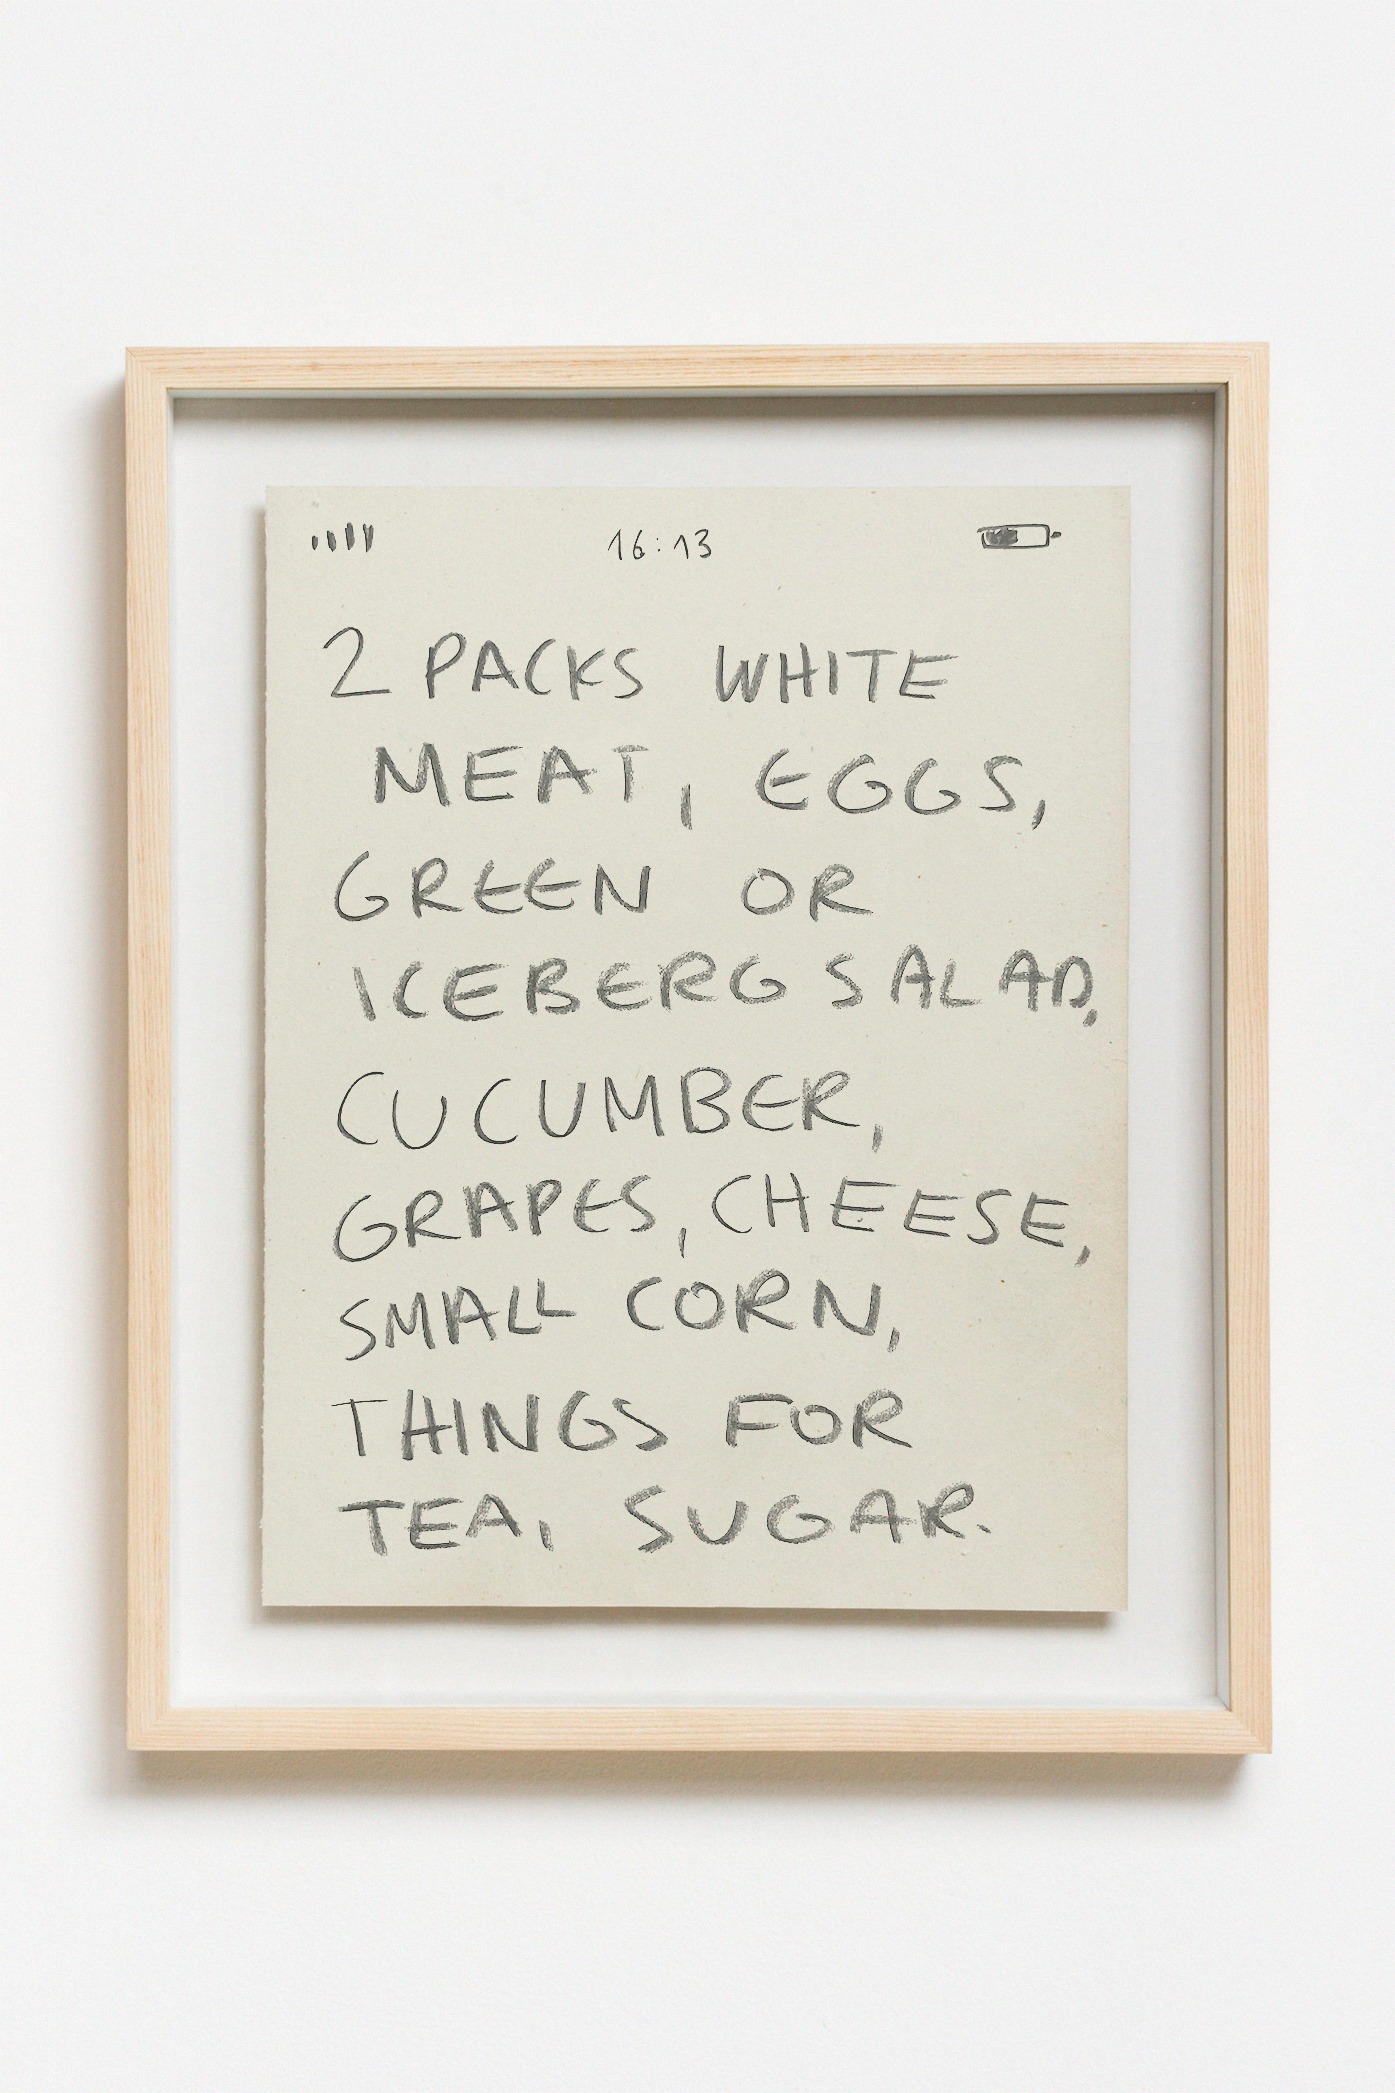 16:13
2 PACKS WHITE
MEAT, EGGS,
GREEN OR
ICEBERG SALAD,
CUCUMBER,
GRAPES, CHEESE,
SMALL CORN,
THINGS FOR
TEA, SUGAR.